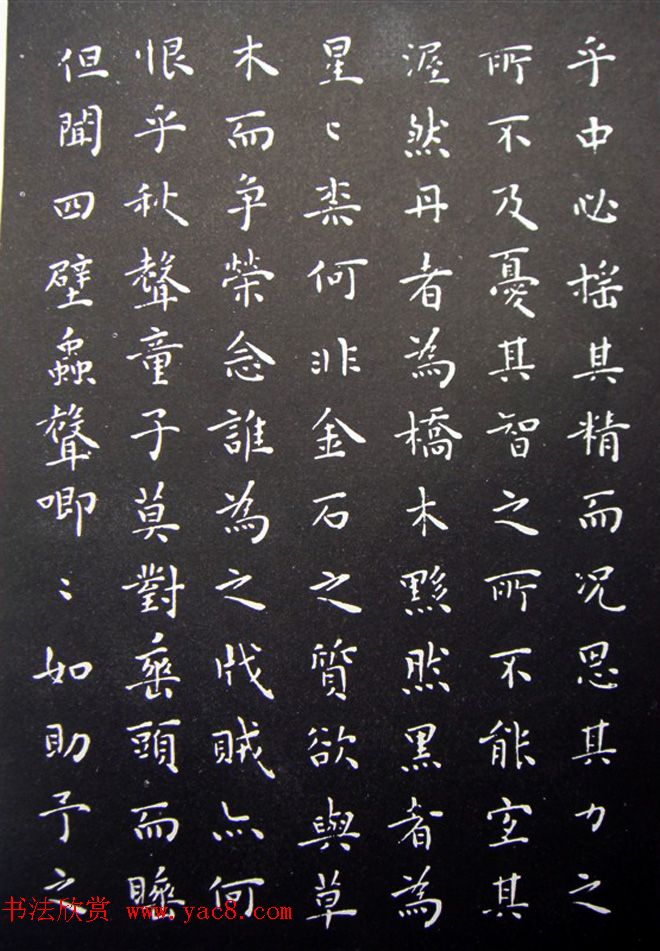 乎中必搖其精而况思其力之
所不及憂其智之所不能宜其
渥然丹者為橋木黟然黑者為
星〻柰何非金石之質欲與草
木而争榮念誰為之戕賊亦何
恨乎秋聲童子莫對垂頭而睡
但聞四壁蟲聲唧〻如助予之
书法欣赏 www.yac8.com